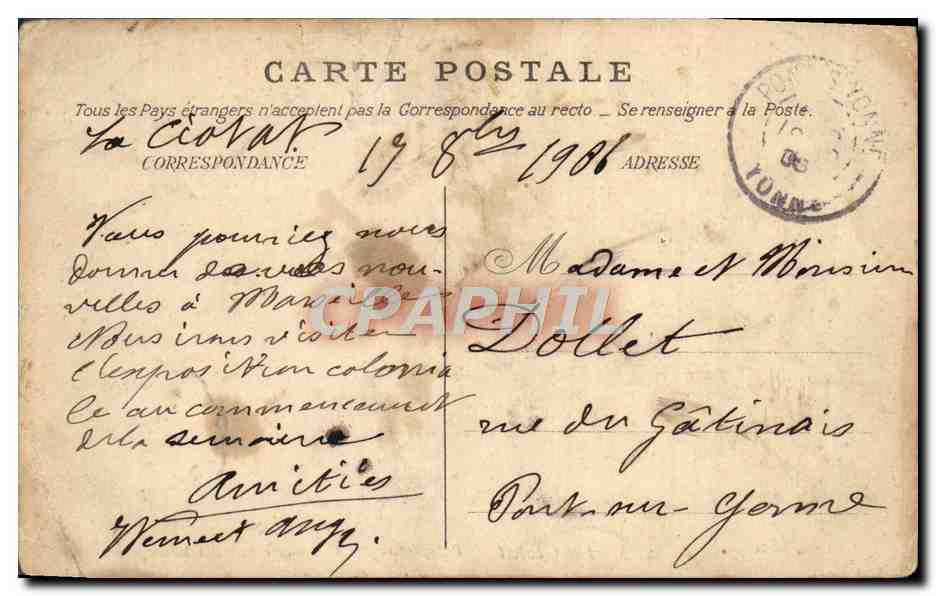 CARTE POSTALE
Tous les Pays étrangers n'acceptent pas la Correspondance au recto _ Se renseigner à la Poste.
La Ciotat
17 8bre 1906
CORRESPONDANCE
ADRESSE
YONNE
Vous pourriez nous
donner de vos nou-
velles à Marseille
Nous irons visiter
l'exposition colonia
le au commencement
de la semaine
Amitiés
Madame et Monsieur
Dollet
rue du Gâtinais
Pont-sur-Yonne
CPAPHIL